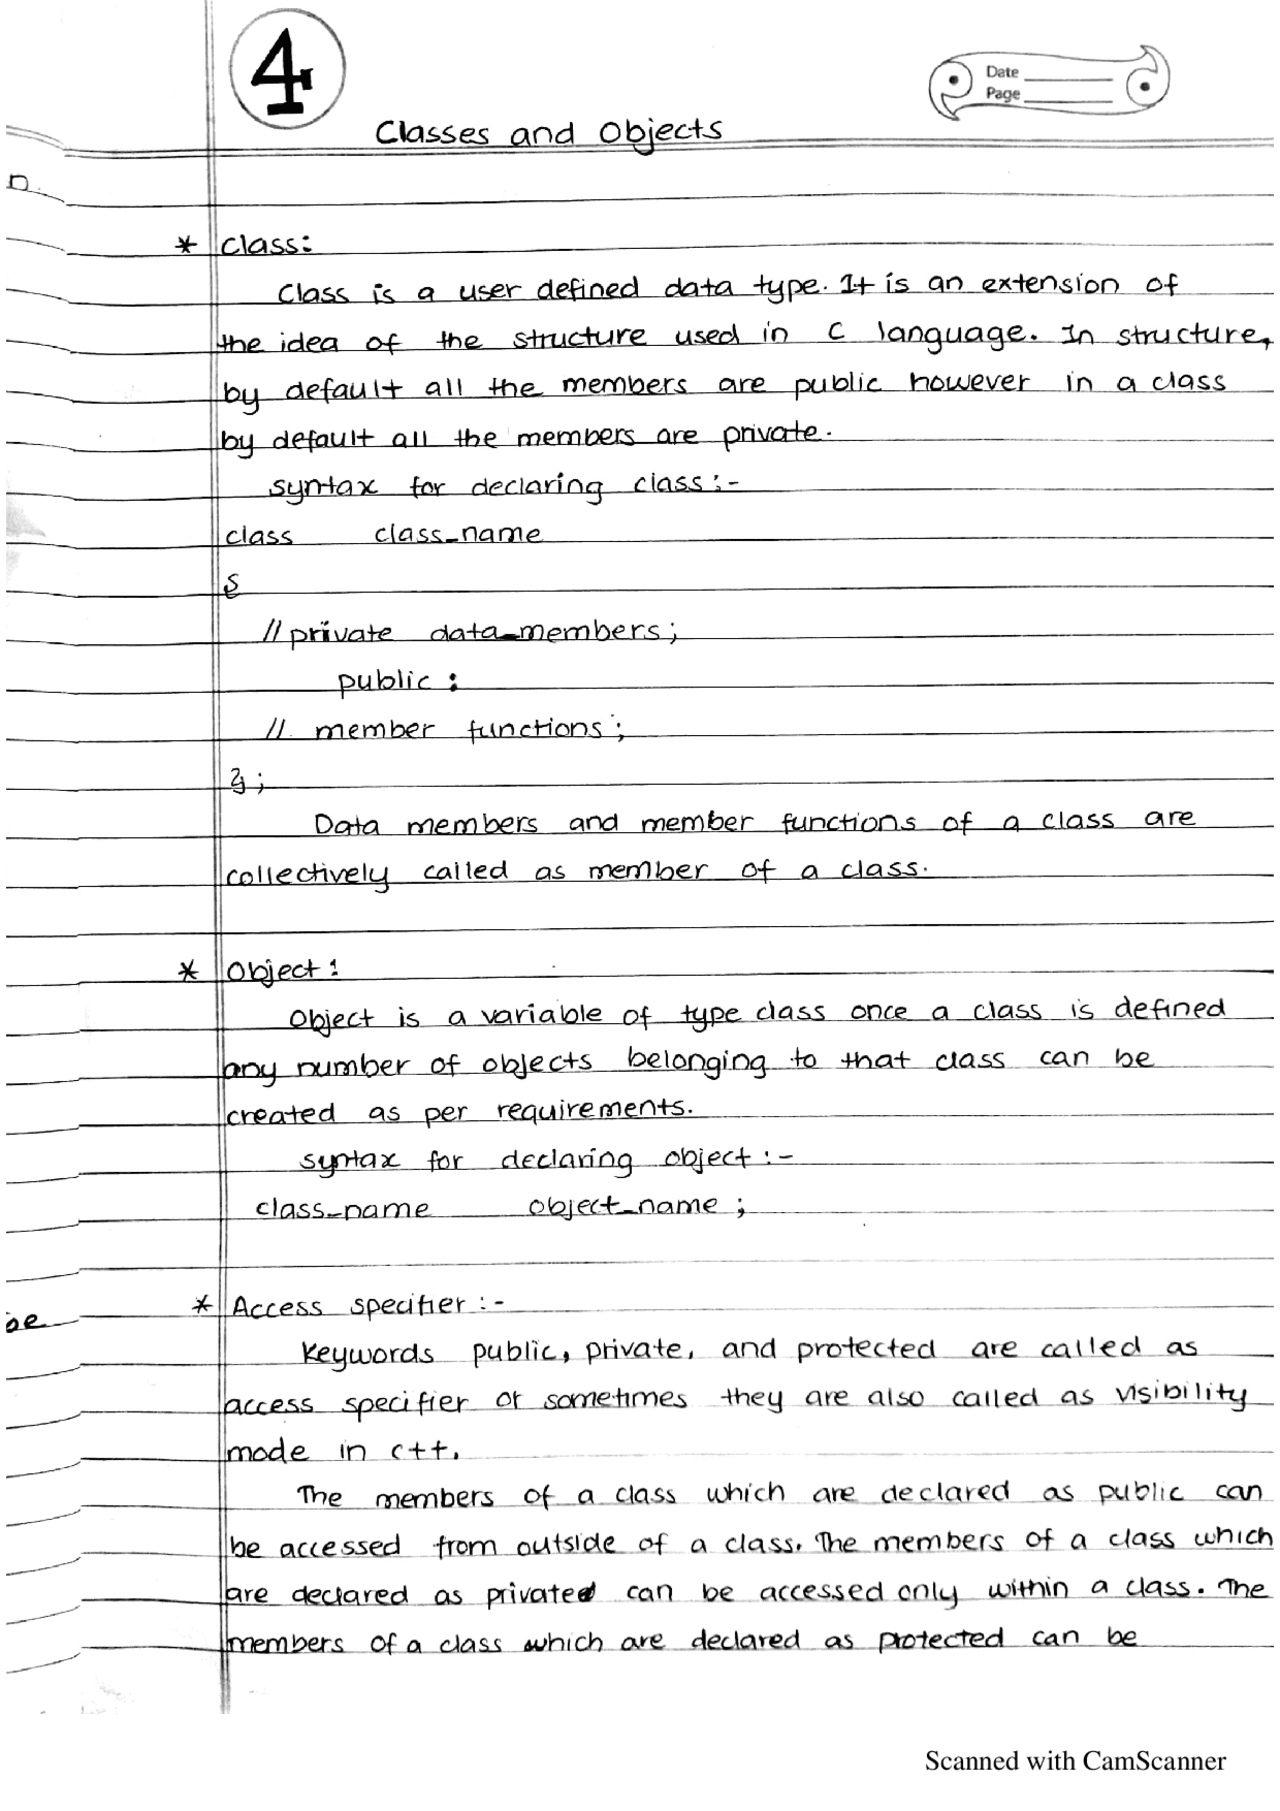 4
Date
Page
Classes and Objects
n.
* Class:
Class is a user defined data type. It is an extension of
the idea of the structure used in C language. In structure,
by default all the members are public however in a class
by default all the members are private.
syntax for declaring class:-
class class_name
{
//private data_members;
public :
// member functions;
};
Data members and member functions of a class are
collectively called as member of a class.
* Object:
Object is a variable of type class once a class is defined
any number of objects belonging to that class can be
created as per requirements.
syntax for declaring object :-
class_name object_name ;
* Access specifier :-
be
Keywords public, private, and protected are called as
access specifier or sometimes they are also called as visibility
mode in c++.
The members of a class which are declared as public can
be accessed from outside of a class. The members of a class which
are declared as private can be accessed only within a class. The
members of a class which are declared as protected can be
Scanned with CamScanner